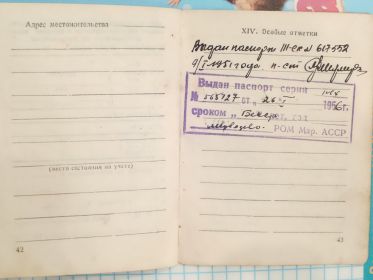 Адрес местожительства
(место состояния на учете)
42
XIV. Особые отметки
Выдан паспорт III-ся 617552
9/I 1951 года н-ст
Выдан паспорт серия
№ 565127 от „ 26 1956 г.
сроком „
РОМ Мар. АССР
43